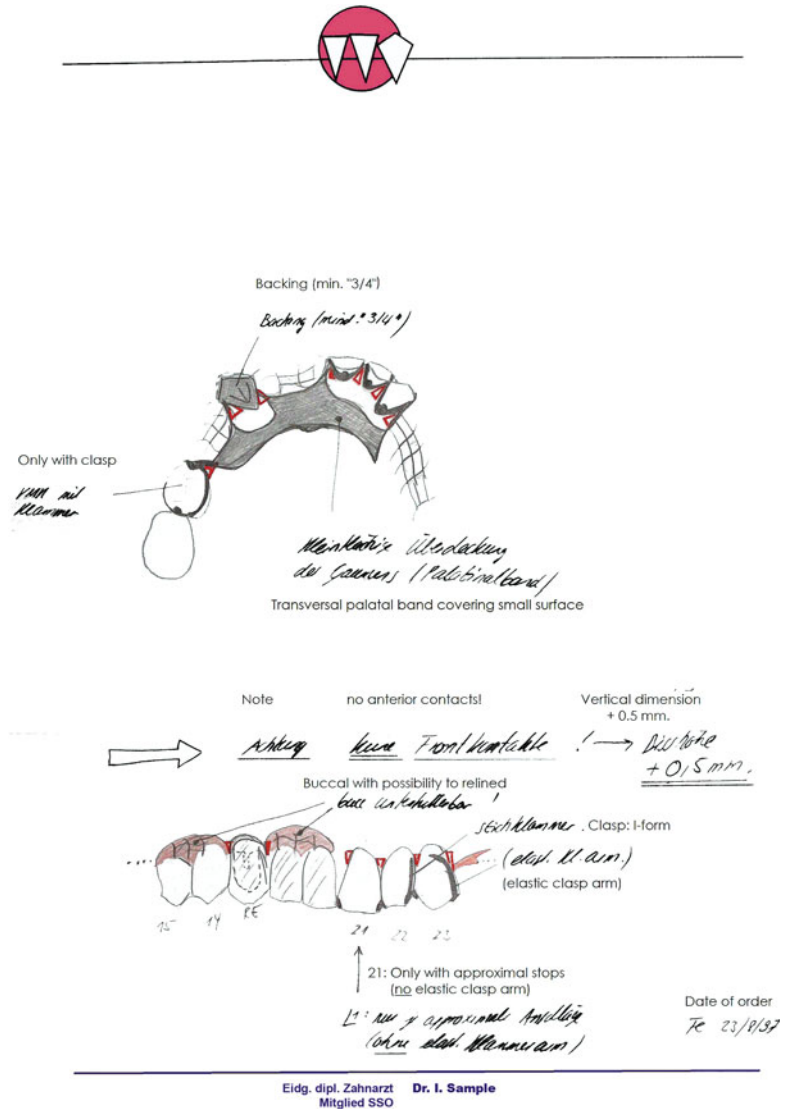 Backing (min. "3/4")
Backing (mind. "3/4")
Only with clasp
mit
Klammer
Kleinflächige Überdeckung
des Gaumens (Palatinalband)
Transversal palatal band covering small surface
Note no anterior contacts! Vertical dimension
+ 0.5 mm.
Achtung keine Frontkontakte ! → Bisshöhe
+ 0,5 mm.
Buccal with possibility to relined
bucc unterfütterbar !
Stichklammer. Clasp: I-form
(elast. Kl.arm.)
(elastic clasp arm)
15 14 RE 21 22 23
21: Only with approximal stops
(no elastic clasp arm)
21: nur approximale
(ohne elast. Klammerarm)
Date of order
Fe 23/8/97
Eidg. dipl. Zahnarzt Dr. I. Sample
Mitglied SSO